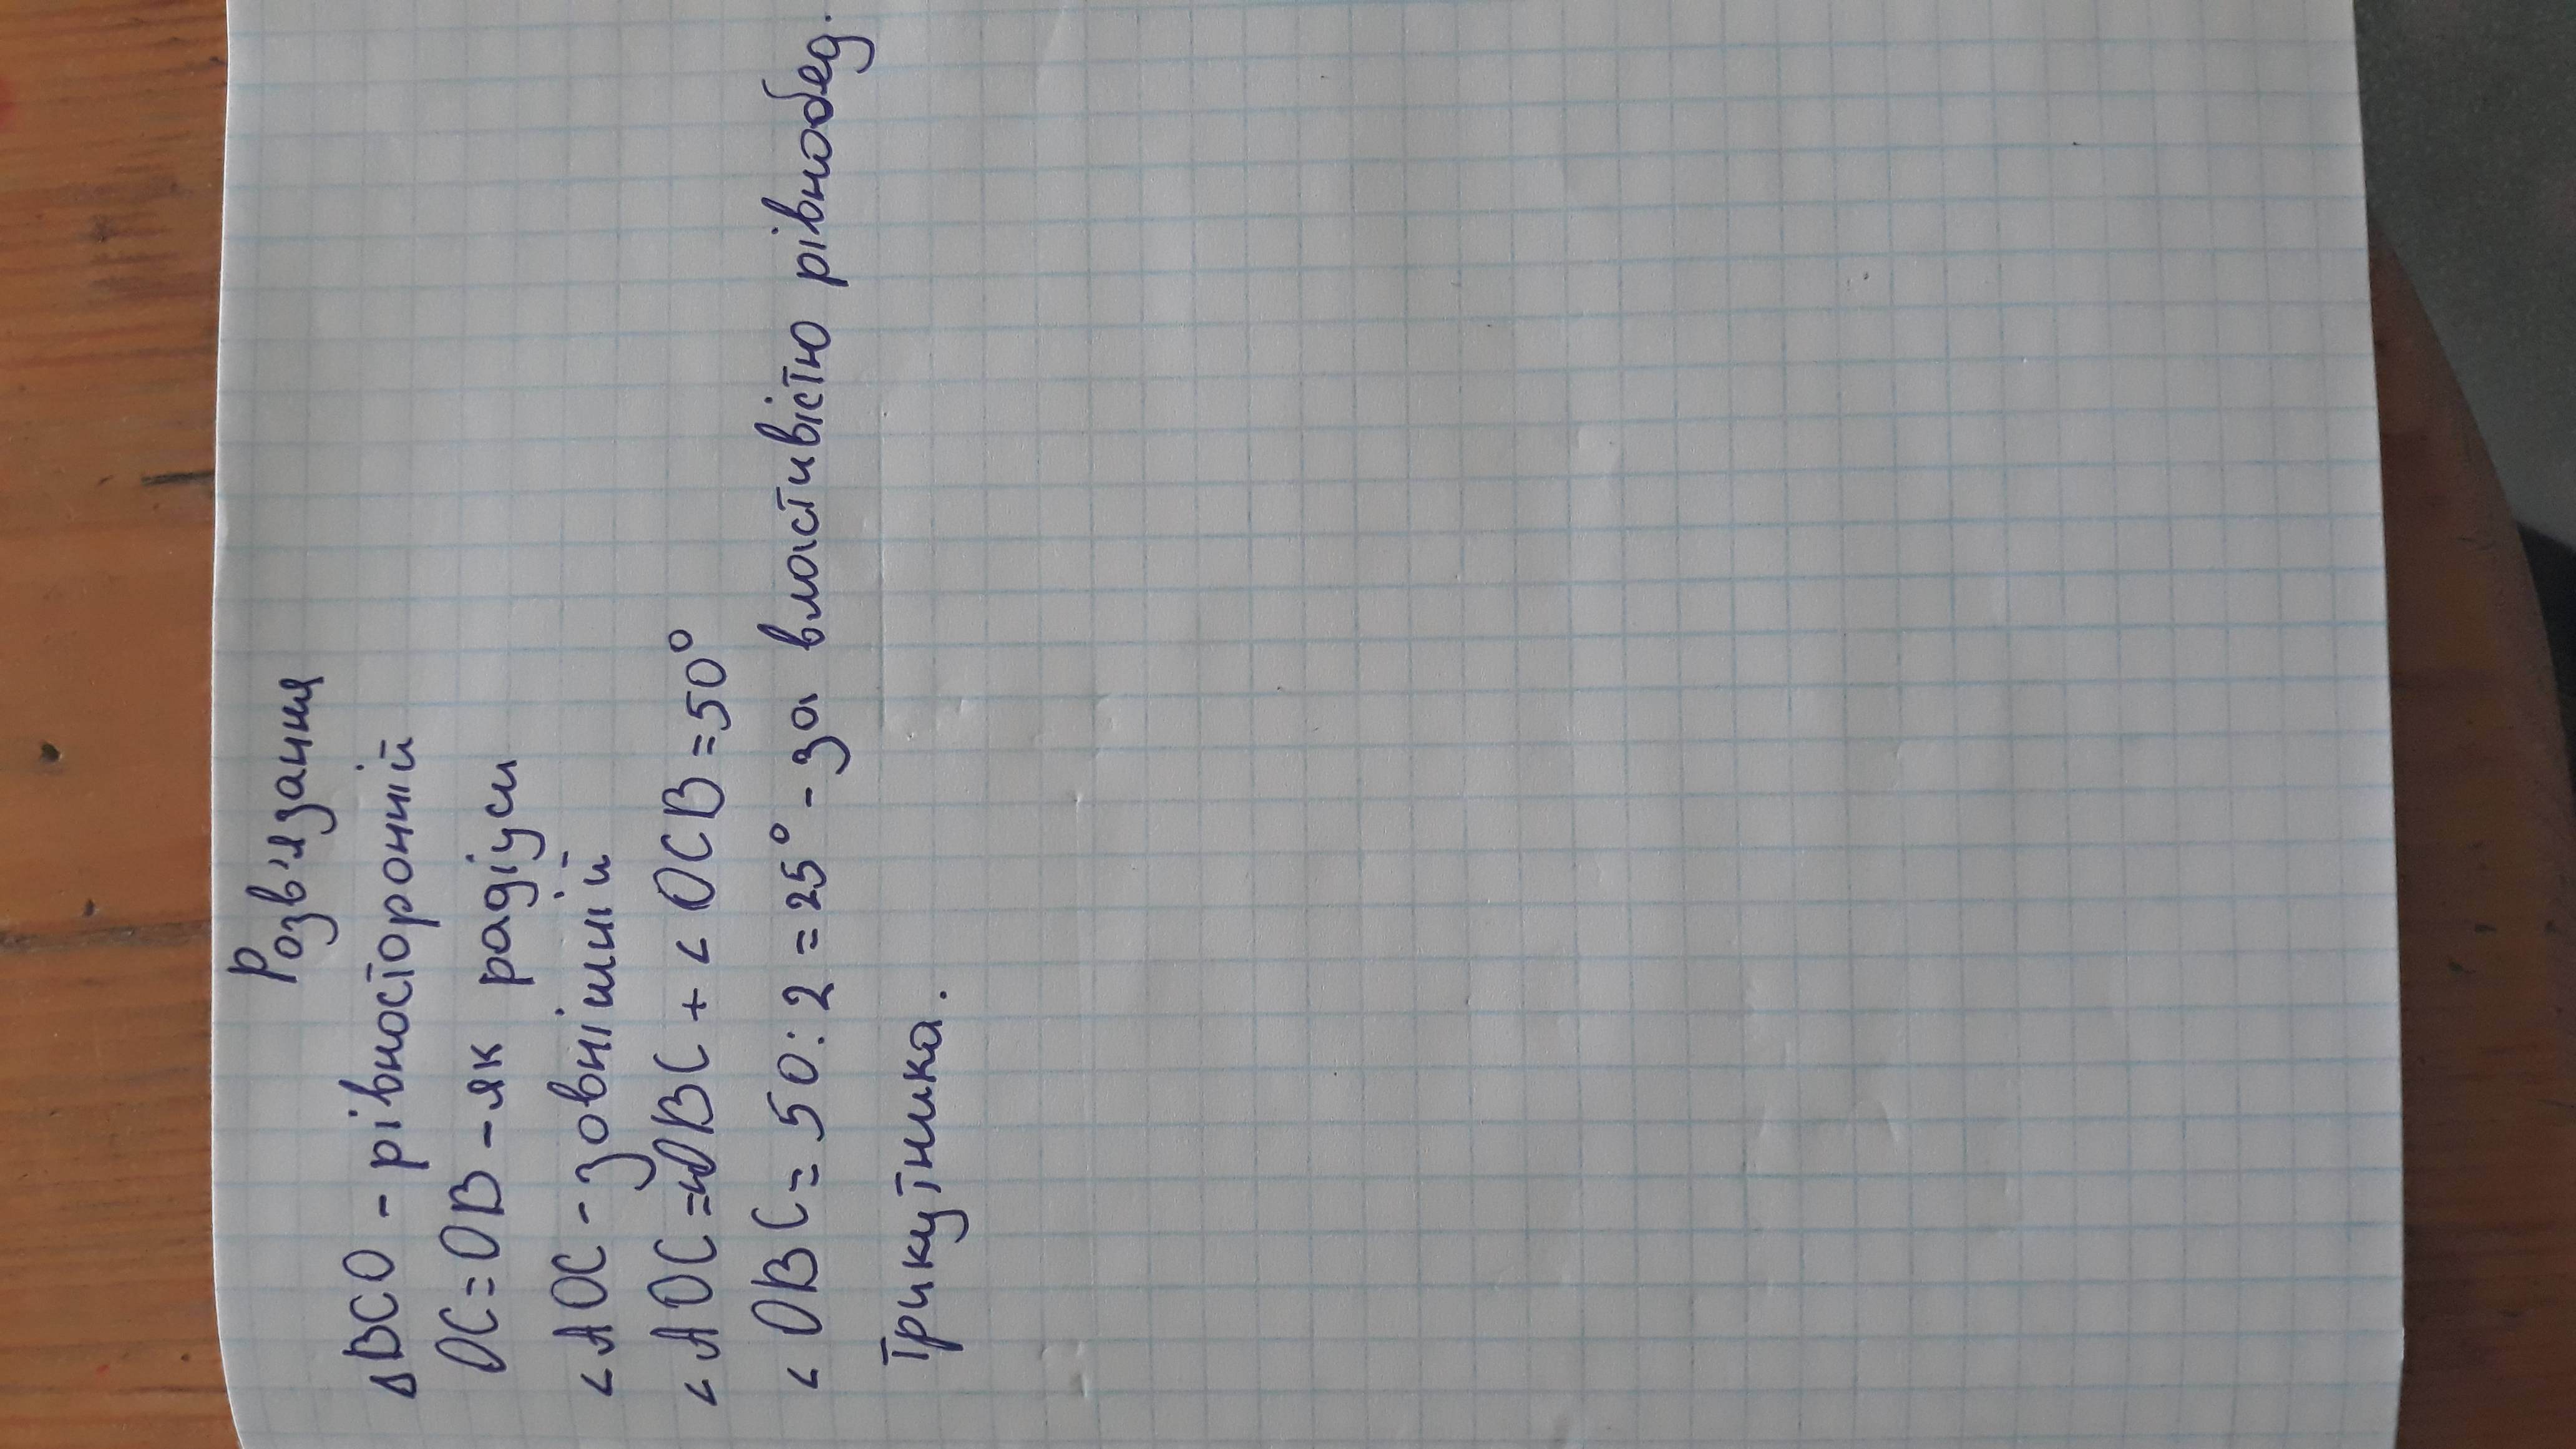 Розв'язання
△BCO - рівносторонній
OC=OB - як радіуси
∠AOC - зовнішній
∠AOC=∠OBC + ∠OCB=50°
∠OBC = 50:2=25° - за властивістю рівнобед.
трикутника.